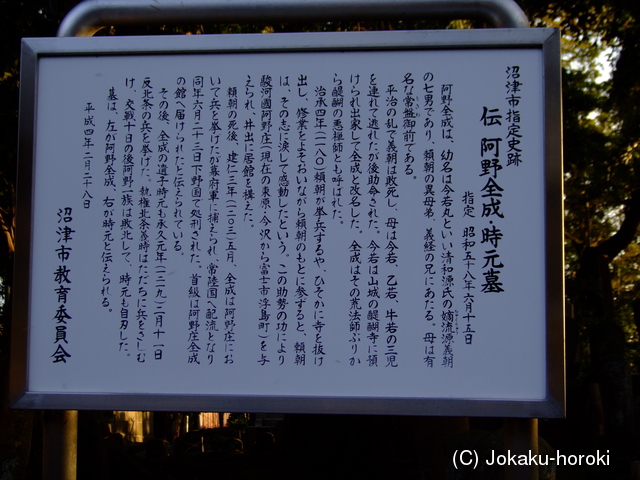 沼津市指定史跡
伝 阿野全成・時元墓
指定 昭和五十八年六月十五日
阿野全成は、幼名は今若丸といい清和源氏の嫡流源義朝
の七男であり、頼朝の異母弟、義経の兄にあたる。母は有
名な常盤御前である。
平治の乱で義朝は敗死し、母は今若、乙若、牛若の三児
を連れて逃れたが後助命された。今若は山城の醍醐寺に預
けられ出家して全成と改名した。全成はその荒法師ぶりか
ら醍醐の悪禅師とも呼ばれた。
治承四年(一一八〇)頼朝が挙兵するや、ひそかに寺を抜け
出し、修業をよそおいながら頼朝のもとに参すると、頼朝
は、その志に涙して感動したという。この助勢の功により
駿河國阿野庄(現在の東原・今沢から富士市浮島町)を与
えられ、井出に居館を構えた。
頼朝の死後、建仁三年(一二〇三)五月、全成は阿野庄にお
いて兵を挙げたが幕府軍に捕えられ、常陸国へ配流となり
同年六月二十三日下野国で処刑された。首級は阿野庄全成
の館へ届けられたと伝えられている。
その後、全成の遺子時元も承久元年(一二一九)二月十一日
反北条の兵を挙げた。執権北条義時はただちに兵をさしむ
け、交戦十日の後阿野一族は敗北して、時元も自刃した。
墓は、左が阿野全成、右が時元と伝えられる。
平成四年二月二十八日
沼津市教育委員会
(C) Jokaku-horoki